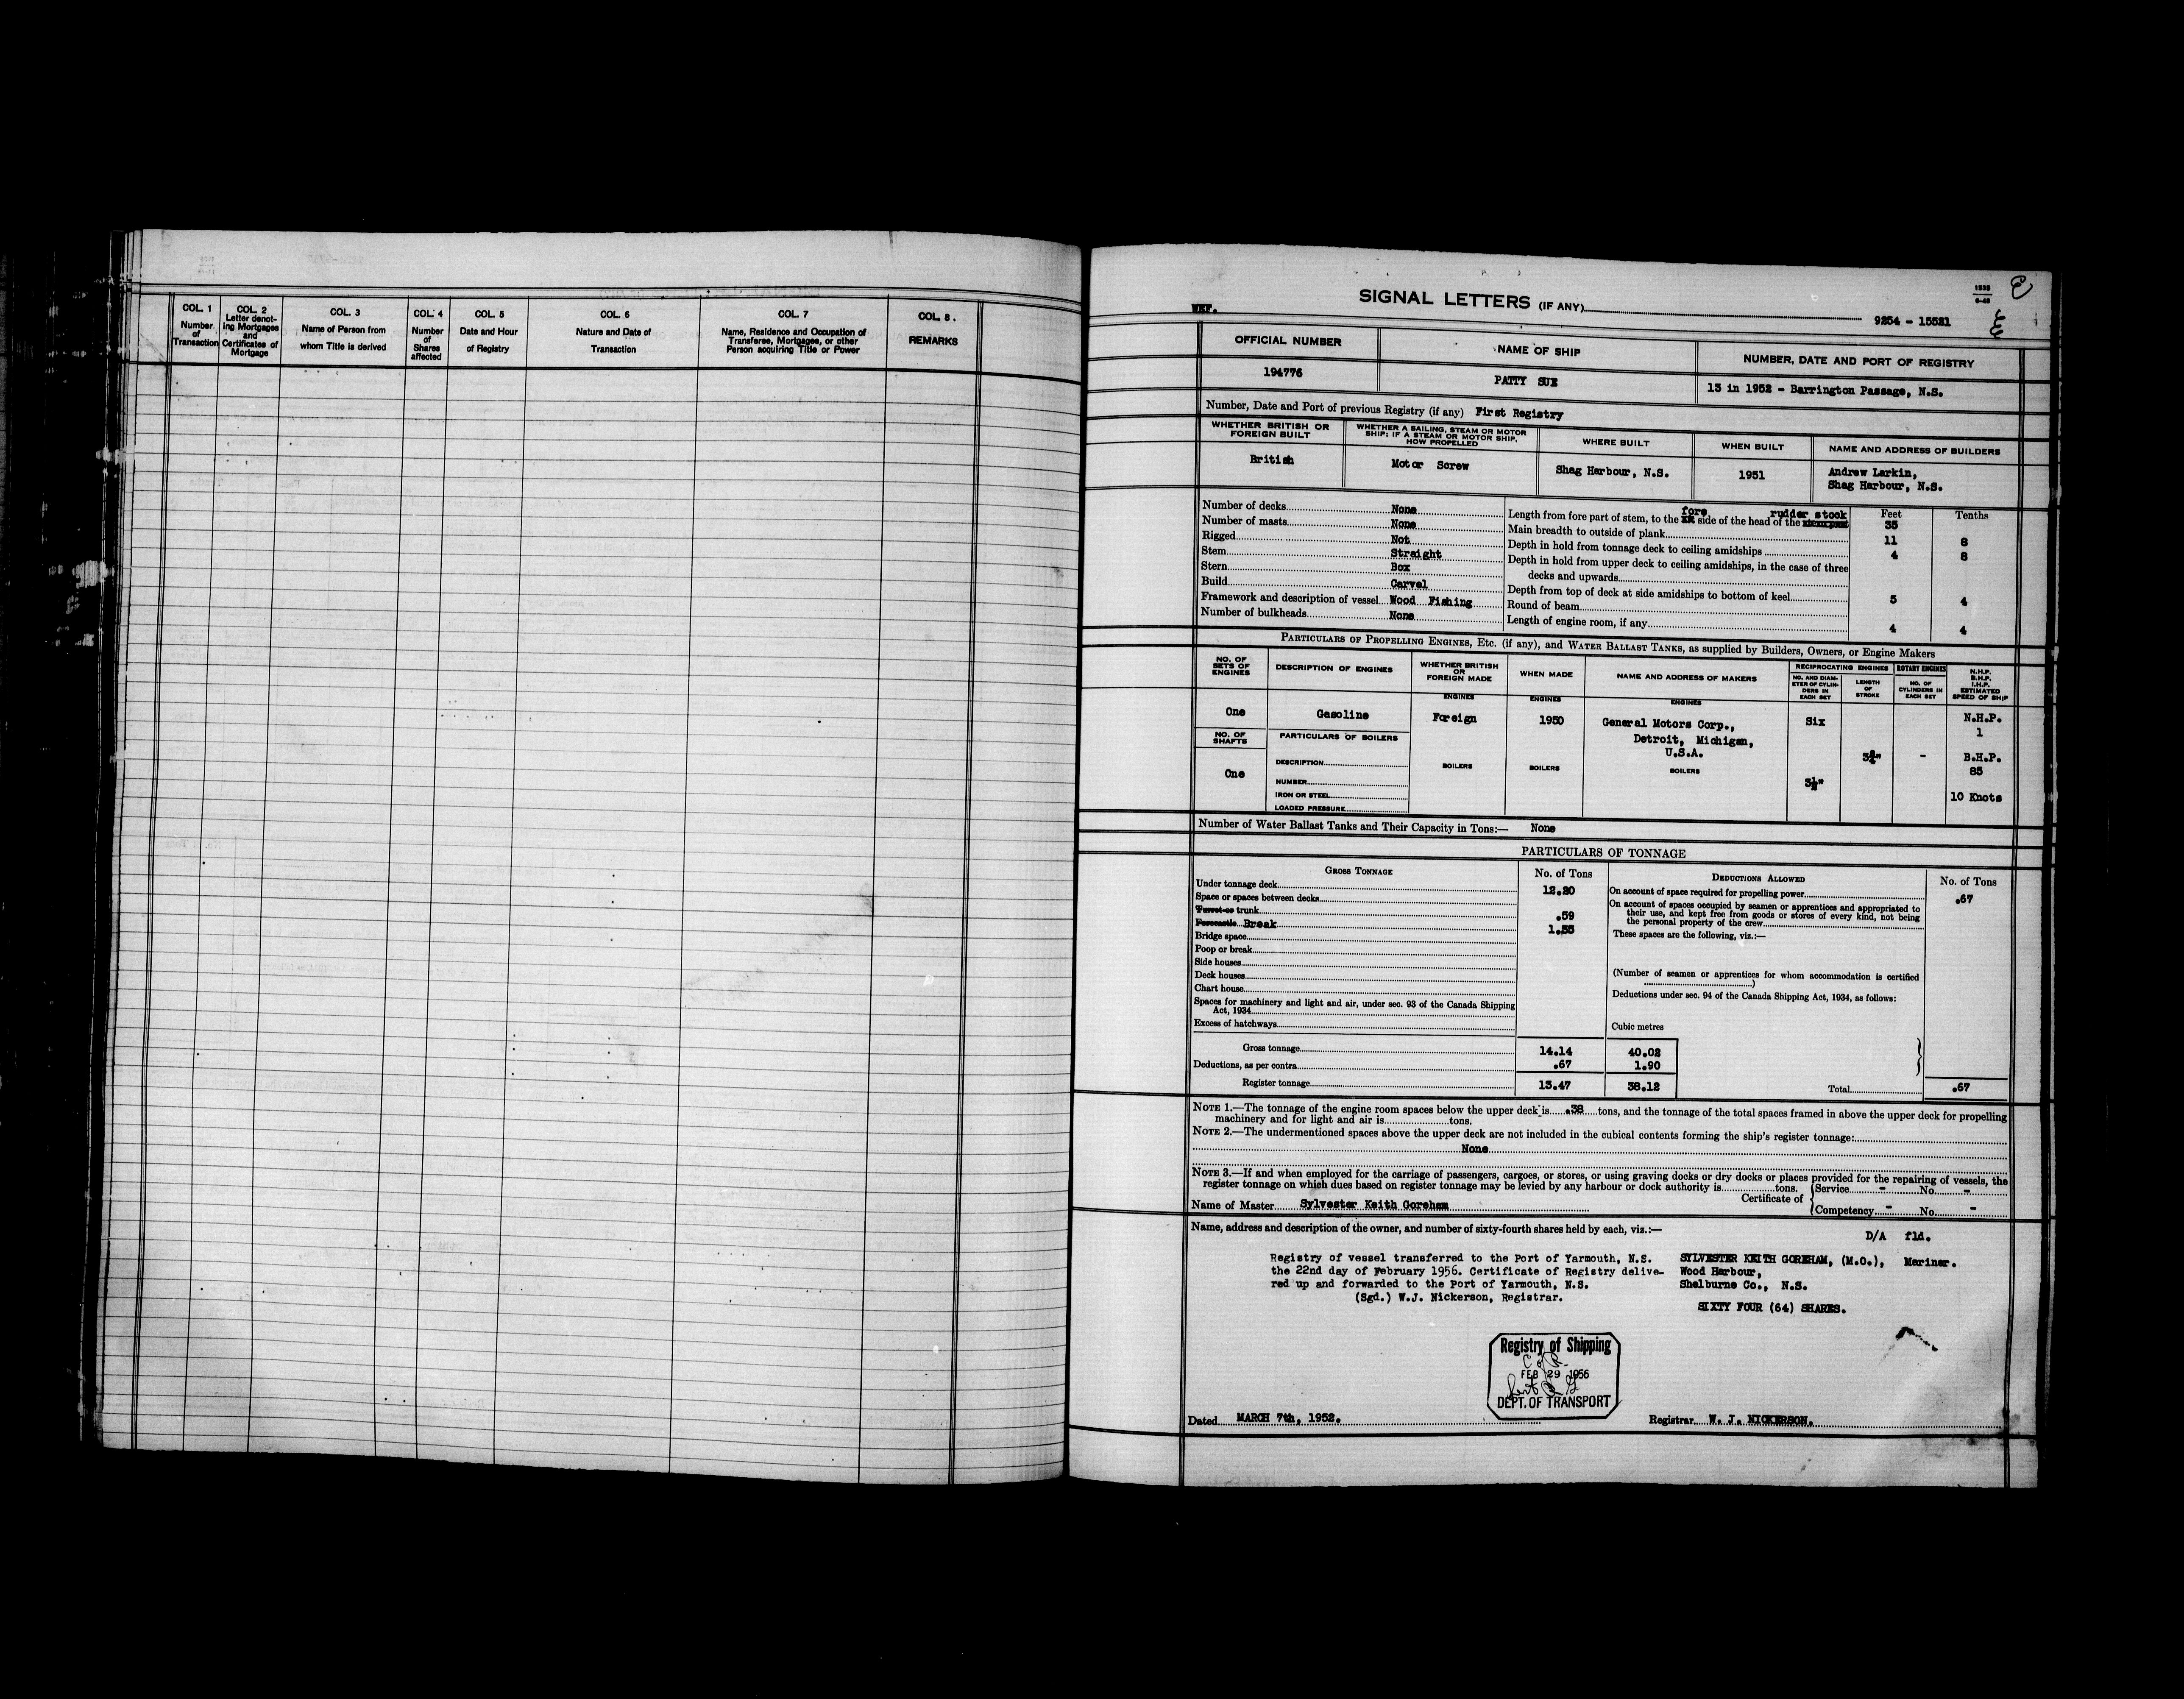 COL. 1 Number of Transaction
COL. 2 Letter denoting Mortgages and Certificates of Mortgage
COL. 3 Name of Person from whom Title is derived
COL. 4 Number of Shares affected
COL. 5 Date and Hour of Registry
COL. 6 Nature and Date of Transaction
COL. 7 Name, Residence and Occupation of Transferee, Mortgages, or other Person acquiring Title or Power
COL. 8. REMARKS
SIGNAL LETTERS (IF ANY)
9254 - 15521
OFFICIAL NUMBER
NAME OF SHIP
NUMBER, DATE AND PORT OF REGISTRY
194776
PATTY SUE
13 in 1952 - Barrington Passage, N.S.
Number, Date and Port of previous Registry (if any) First Registry
WHETHER BRITISH OR FOREIGN BUILT
WHETHER A SAILING, STEAM OR MOTOR SHIP; IF A STEAM OR MOTOR SHIP, HOW PROPELLED
WHERE BUILT
WHEN BUILT
NAME AND ADDRESS OF BUILDERS
British
Motor Screw
Shag Harbour, N.S.
1951
Andrew Larkin,
Shag Harbour, N.S.
Number of decks None
Number of masts None
Rigged Not
Stem Straight
Stern Box
Build Carvel
Framework and description of vessel Wood Fishing
Number of bulkheads None
Feet Tenths
Length from fore part of stem, to the fore side of the head of the rudder stock 35
Main breadth to outside of plank 11 8
Depth in hold from tonnage deck to ceiling amidships 4 8
Depth in hold from upper deck to ceiling amidships, in the case of three
decks and upwards
Depth from top of deck at side amidships to bottom of keel 5 4
Round of beam
Length of engine room, if any 4 4
PARTICULARS OF PROPELLING ENGINES, ETC. (if any), and WATER BALLAST TANKS, as supplied by Builders, Owners, or Engine Makers
NO. OF SETS OF ENGINES
DESCRIPTION OF ENGINES
WHETHER BRITISH OR FOREIGN MADE
WHEN MADE
NAME AND ADDRESS OF MAKERS
RECIPROCATING ENGINES
ROTARY ENGINES
NO. AND DIAMETER OF CYLINDERS IN EACH SET
LENGTH OF STROKE
NO. OF CYLINDERS IN EACH SET
N.H.P. B.H.P. I.H.P. ESTIMATED SPEED OF SHIP
ENGINES ENGINES ENGINES
One
Gasoline
Foreign
1950
General Motors Corp.,
Detroit, Michigan,
U.S.A.
Six
N.H.P.
1
NO. OF SHAFTS
PARTICULARS OF BOILERS
B.H.P.
85
One
DESCRIPTION
NUMBER
IRON OR STEEL
LOADED PRESSURE
BOILERS BOILERS BOILERS
3½"
-
10 Knots
Number of Water Ballast Tanks and Their Capacity in Tons:— None
PARTICULARS OF TONNAGE
GROSS TONNAGE
No. of Tons
DEDUCTIONS ALLOWED
No. of Tons
Under tonnage deck 12.20
Space or spaces between decks
Turret or trunk .59
Forecastle Break 1.35
Bridge space
Poop or break
Side houses
Deck houses
Chart house
Spaces for machinery and light and air, under sec. 93 of the Canada Shipping
Act, 1934
Excess of hatchways
On account of space required for propelling power .67
On account of spaces occupied by seamen or apprentices and appropriated to
their use, and kept free from goods or stores of every kind, not being
the personal property of the crew
These spaces are the following, viz.:—
(Number of seamen or apprentices for whom accommodation is certified
)
Deductions under sec. 94 of the Canada Shipping Act, 1934, as follows:
Cubic metres
Gross tonnage 14.14 40.02
Deductions, as per contra .67 1.90
Register tonnage 13.47 38.12
Total .67
NOTE 1.—The tonnage of the engine room spaces below the upper deck is .38 tons, and the tonnage of the total spaces framed in above the upper deck for propelling
machinery and for light and air is tons.
NOTE 2.—The undermentioned spaces above the upper deck are not included in the cubical contents forming the ship's register tonnage:
None
NOTE 3.—If and when employed for the carriage of passengers, cargoes, or stores, or using graving docks or dry docks or places provided for the repairing of vessels, the
register tonnage on which dues based on register tonnage may be levied by any harbour or dock authority is tons.
Name of Master Sylvester Keith Goreham
Certificate of Service - No. -
Competency - No. -
Name, address and description of the owner, and number of sixty-fourth shares held by each, viz.:—
D/A fld.
Registry of vessel transferred to the Port of Yarmouth, N.S.
the 22nd day of February 1956. Certificate of Registry delive-
red up and forwarded to the Port of Yarmouth, N.S.
(Sgd.) W.J. Nickerson, Registrar.
SYLVESTER KEITH GOREHAM, (M.O.), Mariner.
Wood Harbour,
Shelburne Co., N.S.
SIXTY FOUR (64) SHARES.
Registry of Shipping
FEB 29 1956
DEPT. OF TRANSPORT
Dated MARCH 7th, 1952.
Registrar W. J. NICKERSON.